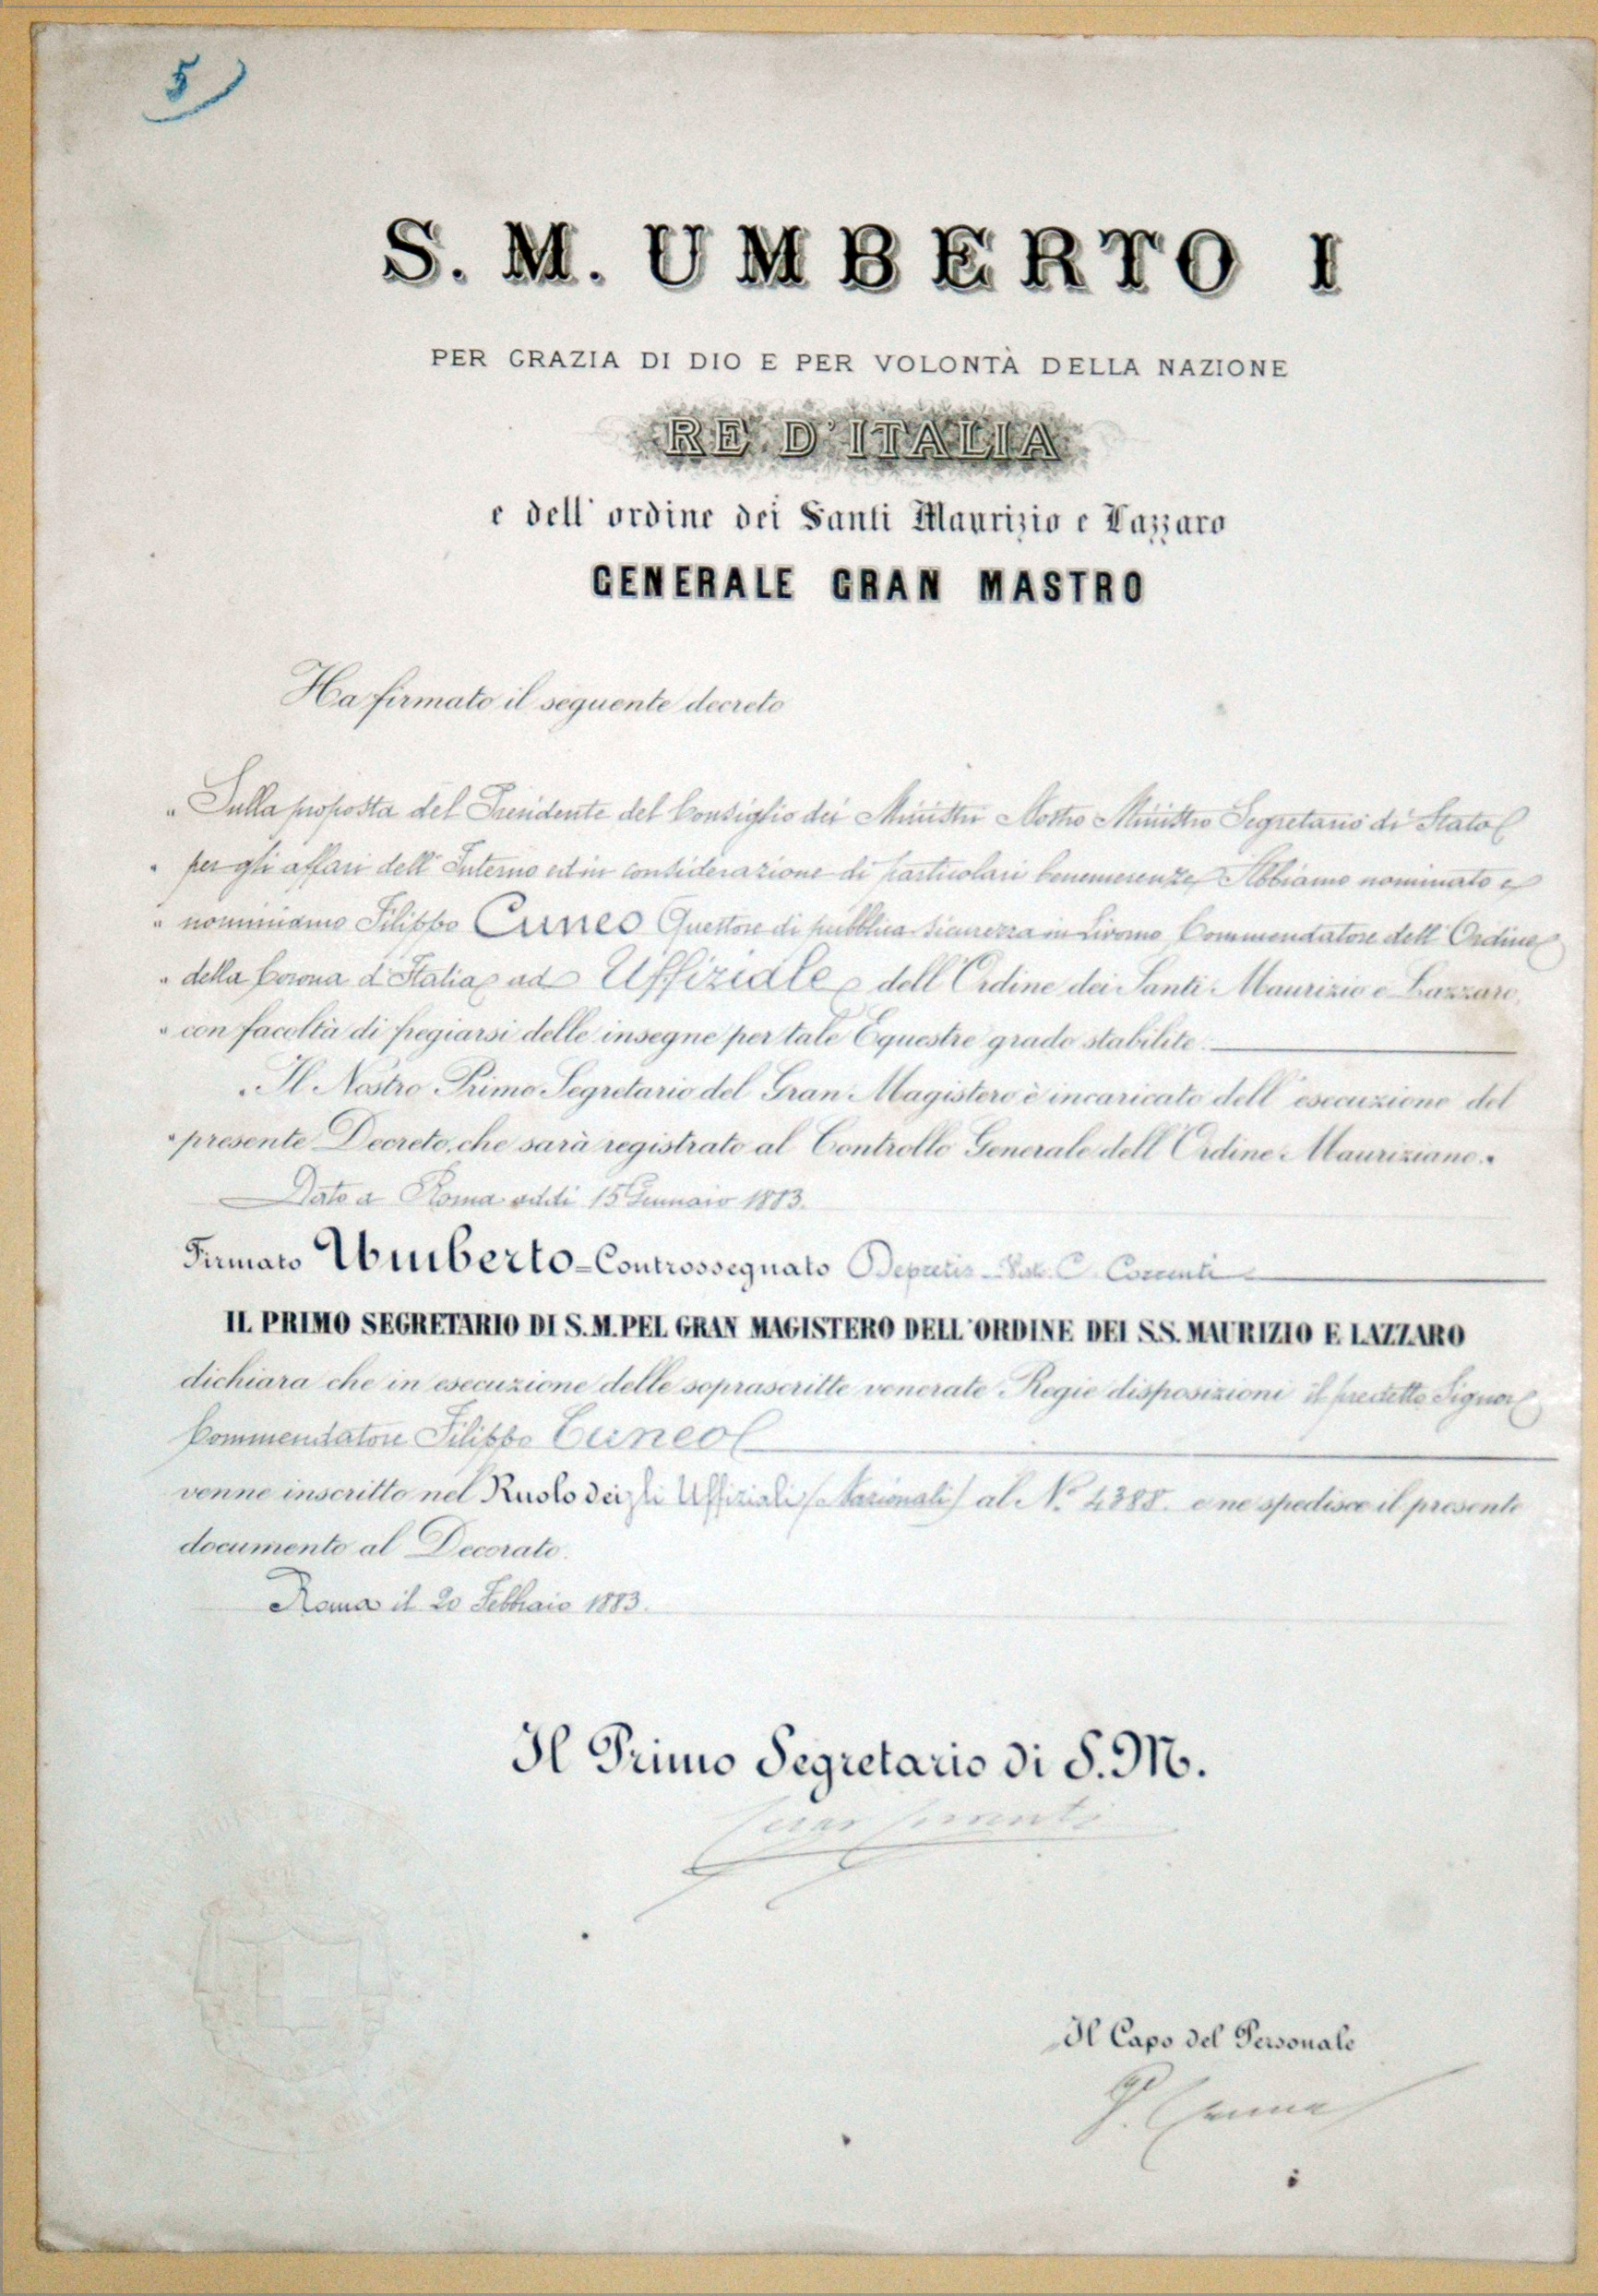 5
S. M. UMBERTO I
PER GRAZIA DI DIO E PER VOLONTÀ DELLA NAZIONE
RE D'ITALIA
e dell' ordine dei Santi Maurizio e Lazzaro
GENERALE GRAN MASTRO
Ha firmato il seguente decreto
" Sulla proposta del Presidente del Consiglio dei Ministri Nostro Ministro Segretario di Stato
" per gli affari dell' Interno ed in considerazione di particolari benemerenze Abbiamo nominato e
" nominiamo Filippo Cuneo Questore di pubblica sicurezza in Livorno Commendatore dell' Ordine
" della Corona d'Italia ad Uffiziale dell' Ordine dei Santi Maurizio e Lazzaro,
" con facoltà di fregiarsi delle insegne per tale Equestre grado stabilite.
" Il Nostro Primo Segretario del Gran Magistero è incaricato dell' esecuzione del
" presente Decreto, che sarà registrato al Controllo Generale dell' Ordine Mauriziano."
Dato a Roma addì 15 Gennaio 1883.
Firmato Umberto - Controssegnato Depretis - C. Correnti
IL PRIMO SEGRETARIO DI S. M. PEL GRAN MAGISTERO DELL' ORDINE DEI S.S. MAURIZIO E LAZZARO
dichiara che in esecuzione delle soprascritte venerate Regie disposizioni il predetto Signor
Commendatore Filippo Cuneo
venne inscritto nel Ruolo degli Uffiziali (Nazionali) al N.° 4388. e ne spedisce il presente
documento al Decorato.
Roma il 20 Febbraio 1883.
Il Primo Segretario di S. M.
Cesare Correnti
Il Capo del Personale